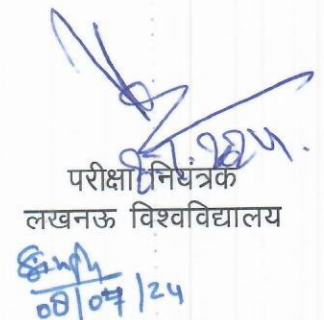 परीक्षा नियंत्रक
लखनऊ विश्वविद्यालय
Singh
08/07/24